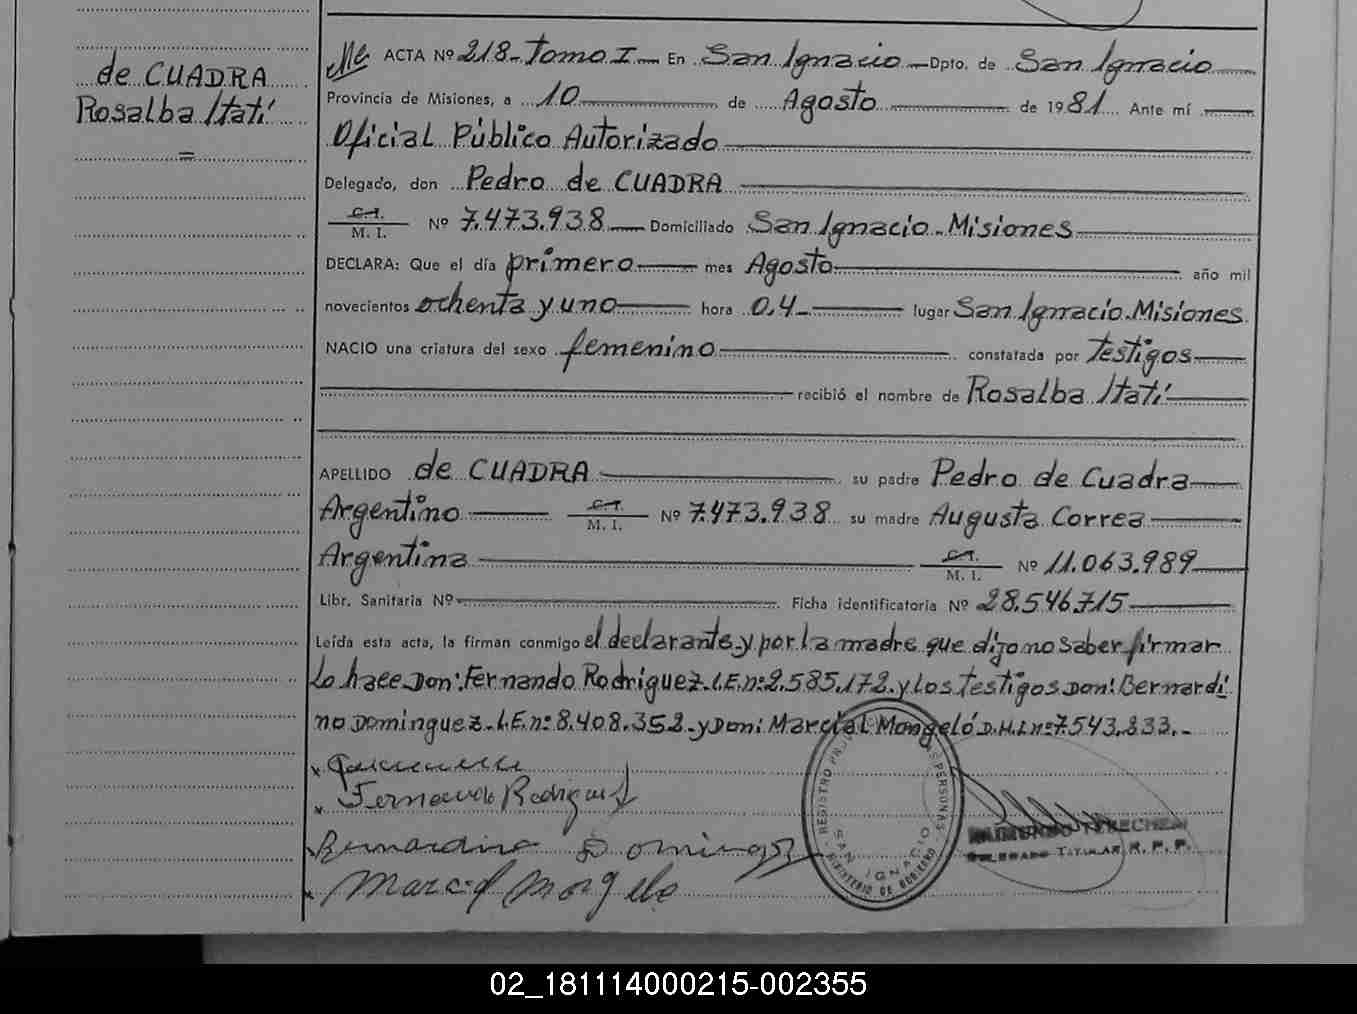 de CUADRA
Rosalba Itatí
=
ACTA Nº 218 - Tomo I. En San Ignacio Dpto. de San Ignacio
Provincia de Misiones, a 10 de Agosto de 1981. Ante mí
Oficial Público Autorizado
Delegado, don Pedro de CUADRA
C.I. / M. I. Nº 7.473.938 Domiciliado San Ignacio - Misiones
DECLARA: Que el día primero mes Agosto año mil
novecientos ochenta y uno hora 0,4 lugar San Ignacio - Misiones
NACIO una criatura del sexo femenino constatada por testigos
recibió el nombre de Rosalba Itatí
APELLIDO de CUADRA su padre Pedro de Cuadra
Argentino C.I. / M. I. Nº 7.473.938 su madre Augusta Correa
Argentina C.I. / M. I. Nº 11.063.989
Libr. Sanitaria Nº Ficha identificatoria Nº 28.546.715
Leída esta acta, la firman conmigo el declarante y por la madre que dijo no saber firmar
lo hace Don: Fernando Rodriguez - L.E. nº 2.585.172 - y los testigos Don: Bernardi
no Dominguez - L.E. nº 8.408.352 - y Don: Marcial Mongeló D.N.I. nº 7.543.233. -
Fernando Rodriguez
Bernardino Dominguez
Marcial Mongelo
REGISTRO PROV. DE LAS PERSONAS
SAN IGNACIO
MINISTERIO DE GOBIERNO
DELEGADO TITULAR R. P. P.
02_181114000215-002355